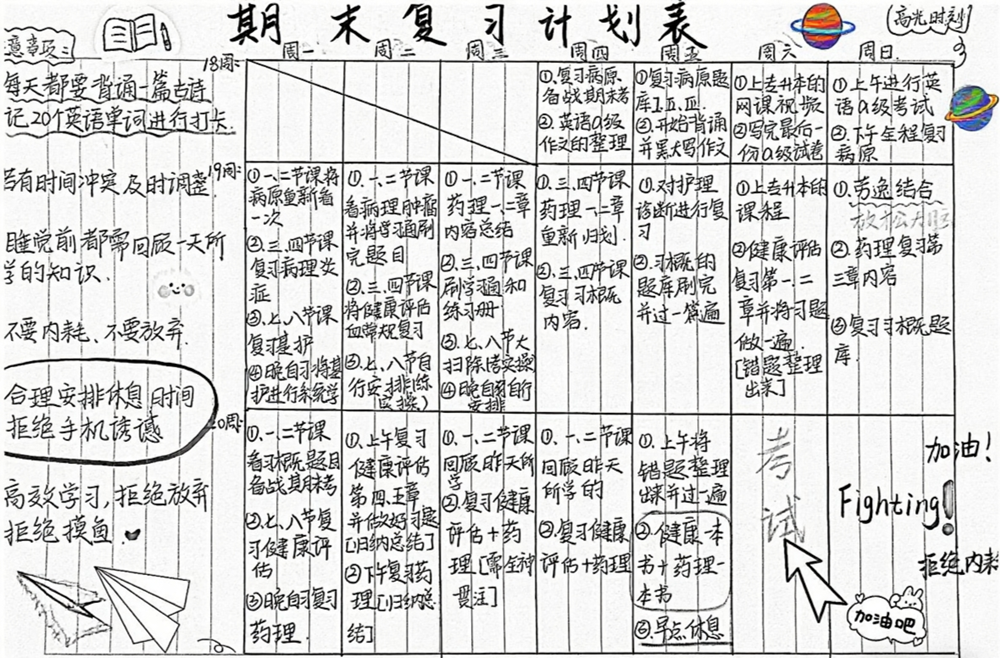 期末复习计划表
高光时刻
周一 周二 周三 周四 周五 周六 周日
意事项:
每天都要背诵一篇古诗
记20个英语单词进行打卡.
若有时间冲突及时调整
睡觉前都需回顾一天所
学的知识.
不要内耗、不要放弃.
合理安排休息时间
拒绝手机诱惑
高效学习,拒绝放弃
拒绝摸鱼.
18周:
①.复习病原、
备战期末考
②.英语a级
作文的整理
①复习病原题
库Ⅰ.Ⅱ.Ⅲ.
②.开始背诵
并默写作文
①上专升本的
网课视频
②写完最后一
份a级试卷
①上午进行英
语a级考试
②.下午全程复习
病原
19周:
①一、二节课将
病原重新看
一次
②.三、四节课
复习病理炎
症
③.七、八节课
复习基护
④晚自习将基
护进行系统学
①.一、二节课
看病理肿瘤
并将学习通刷
完题目
②.三、四节课
将健康评估
血常规复习
③.七、八节自
行安排(练
实操)
①.一、二节课
药理一、二章
内容总结
②.三、四节课
刷学习通和
练习册
③.七、八节大
扫除
④晚自习自行
安排
①.三、四节课
药理一、二章
重新归划.
②.三、四节课
复习习概
内容.
①.对护理
诊断进行复
习
②.习概的
题库刷完
并过一篇遍
①上专升本的
课程
②健康评估
复习第一、二
章并将习题
做一遍.
[错题整理
出来]
①.劳逸结合
放松大脑
②.药理复习第
三章内容
③复习习概题
库.
20周:
①.一、二节课
看习概题目
备战期末考
②.七、八节复
习健康评
估
③晚自习复习
药理.
①.上午复习
健康评估
第四、五章
并做好习题
[归纳总结]
②下午复习药
理[归纳总
结]
①.一、二节课
回顾昨天所
学的
②复习健康
评估+药
理.[需全神
贯注]
①.一、二节课
回顾昨天
所学的
②.复习健康
评估+药理
①.上午将
错题整理
出来并过一遍
②.健康一本
书+药理一
本书
③.早点休息
考试
加油!
Fighting!
拒绝内耗
加油吧